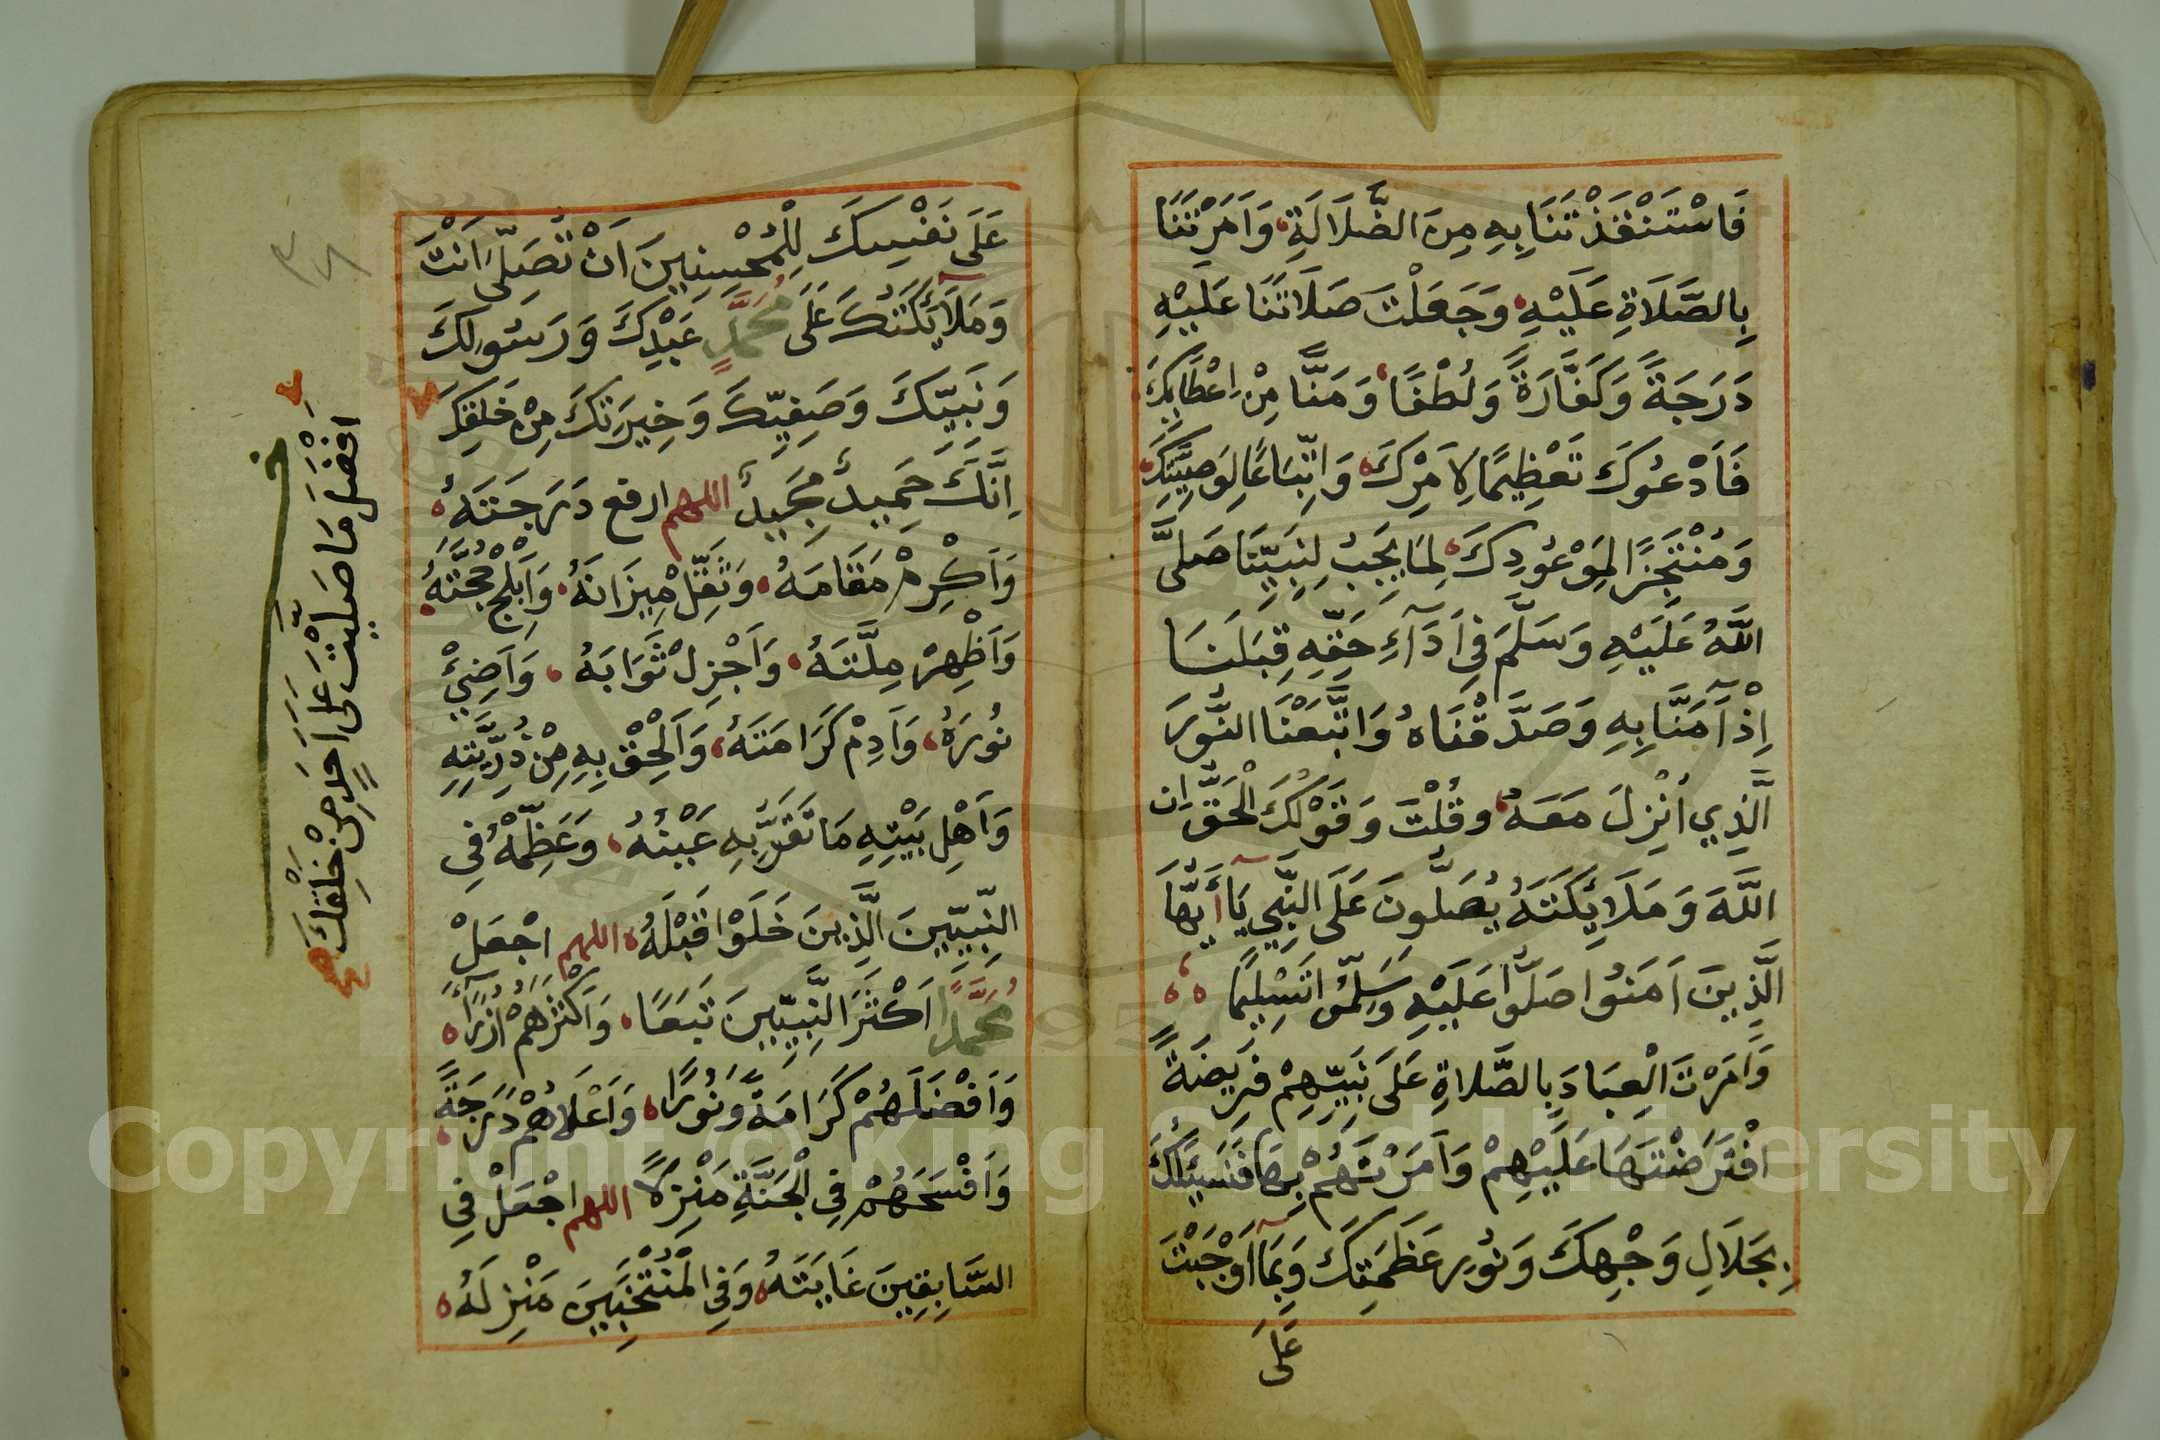 فَاسْتَنْقَذْتَنَا بِهِ مِنَ الضَّلَالَةِ، وَاَمَرْتَنَا
بِالصَّلَاةِ عَلَيْهِ، وَجَعَلْتَ صَلَاتَنَا عَلَيْهِ
دَرَجَةً وَكَفَّارَةً وَلُطْفًا، وَمَنًّا مِنْ اِعْطَائِكَ،
فَاَدْعُوكَ تَعْظِيمًا لِاَمْرِكَ، وَاِتِّبَاعًا لِوَصِيَّتِكَ،
وَمُنْتَجِزًا لِمَوْعُودِكَ، لِمَا يَجِبُ لِنَبِيِّنَا صَلَّى
اللَّهُ عَلَيْهِ وَسَلَّمَ فِي اَدَآءِ حَقِّهِ قِبَلَنَا
اِذْ آمَنَّا بِهِ وَصَدَّقْنَاهُ وَاتَّبَعْنَا النُّورَ
الَّذِي اُنْزِلَ مَعَهُ، وقُلْتَ وَقَوْلُكَ الْحَقُّ اِنَّ
اللَّهَ وَمَلَائِكَتَهُ يُصَلُّونَ عَلَى النَّبِيِّ يَا أَيُّهَا
الَّذِينَ اَمَنُوا صَلُّوا عَلَيْهِ وَسَلِّمُوا تَسْلِيمًا
وَاَمَرْتَ الْعِبَادَ بِالصَّلَاةِ عَلَى نَبِيِّهِمْ فَرِيضَةً
افْتَرَضْتَهَا عَلَيْهِمْ وَاَمَرْتَهُمْ بِهَا فَنَسْئَلُكَ
بِجَلَالِ وَجْهِكَ وَنُورِ عَظَمَتِكَ وَبِمَآ اَوْجَبْتَ
عَلَى
٣٨
عَلَى نَفْسِكَ لِلْمُحْسِنِينَ اَنْ تُصَلِّيَ اَنْتَ
وَمَلَآئِكَتُكَ عَلَى مُحَمَّدٍ عَبْدِكَ وَرَسُولِكَ
وَنَبِيِّكَ وَصَفِيِّكَ وَخِيرَتِكَ مِنْ خَلْقِكَ
اِنَّكَ حَمِيدٌ مَجِيدٌ اللهم ارفع دَرَجَتَهُ،
وَاَكْرِمْ مَقَامَهُ، وَثَقِّلْ مِيزَانَهُ، وَاَبْلِجْ حُجَّتَهُ،
وَاَظْهِرْ مِلَّتَهُ، وَاَجْزِلْ ثَوَابَهُ، وَاَضِئْ
نُورَهُ، وَاَدِمْ كَرَامَتَهُ، وَاَلْحِقْ بِهِ مِنْ ذُرِّيَّتِهِ
وَاَهْلِ بَيْتِهِ مَا تَقَرُّ بِهِ عَيْنُهُ، وَعَظِّمْهُ فِي
النَّبِيِّينَ الَّذِينَ خَلَوْا قَبْلَهُ، اللهم اجْعَلْ
مُحَمَّدًا اَكْثَرَ النَّبِيِّينَ تَبَعًا، وَاَكْثَرَهُمْ اُزَرَآءَ،
وَاَفْضَلَهُمْ كَرَامَةً وَنُورًا، وَاَعْلَاهُمْ دَرَجَةً،
وَاَفْسَحَهُمْ فِي الْجَنَّةِ مَنْزِلًا اللهم اجْعَلْ فِي
السَّابِقِينَ غَايَتَهُ، وَفِي الْمُنْتَخَبِينَ مَنْزِلَهُ،
اَفْضَلَ مَا صَلَّيْتَ عَلَى اَحَدٍ مِنْ خَلْقِكَ صح
Copyright © King Saud University